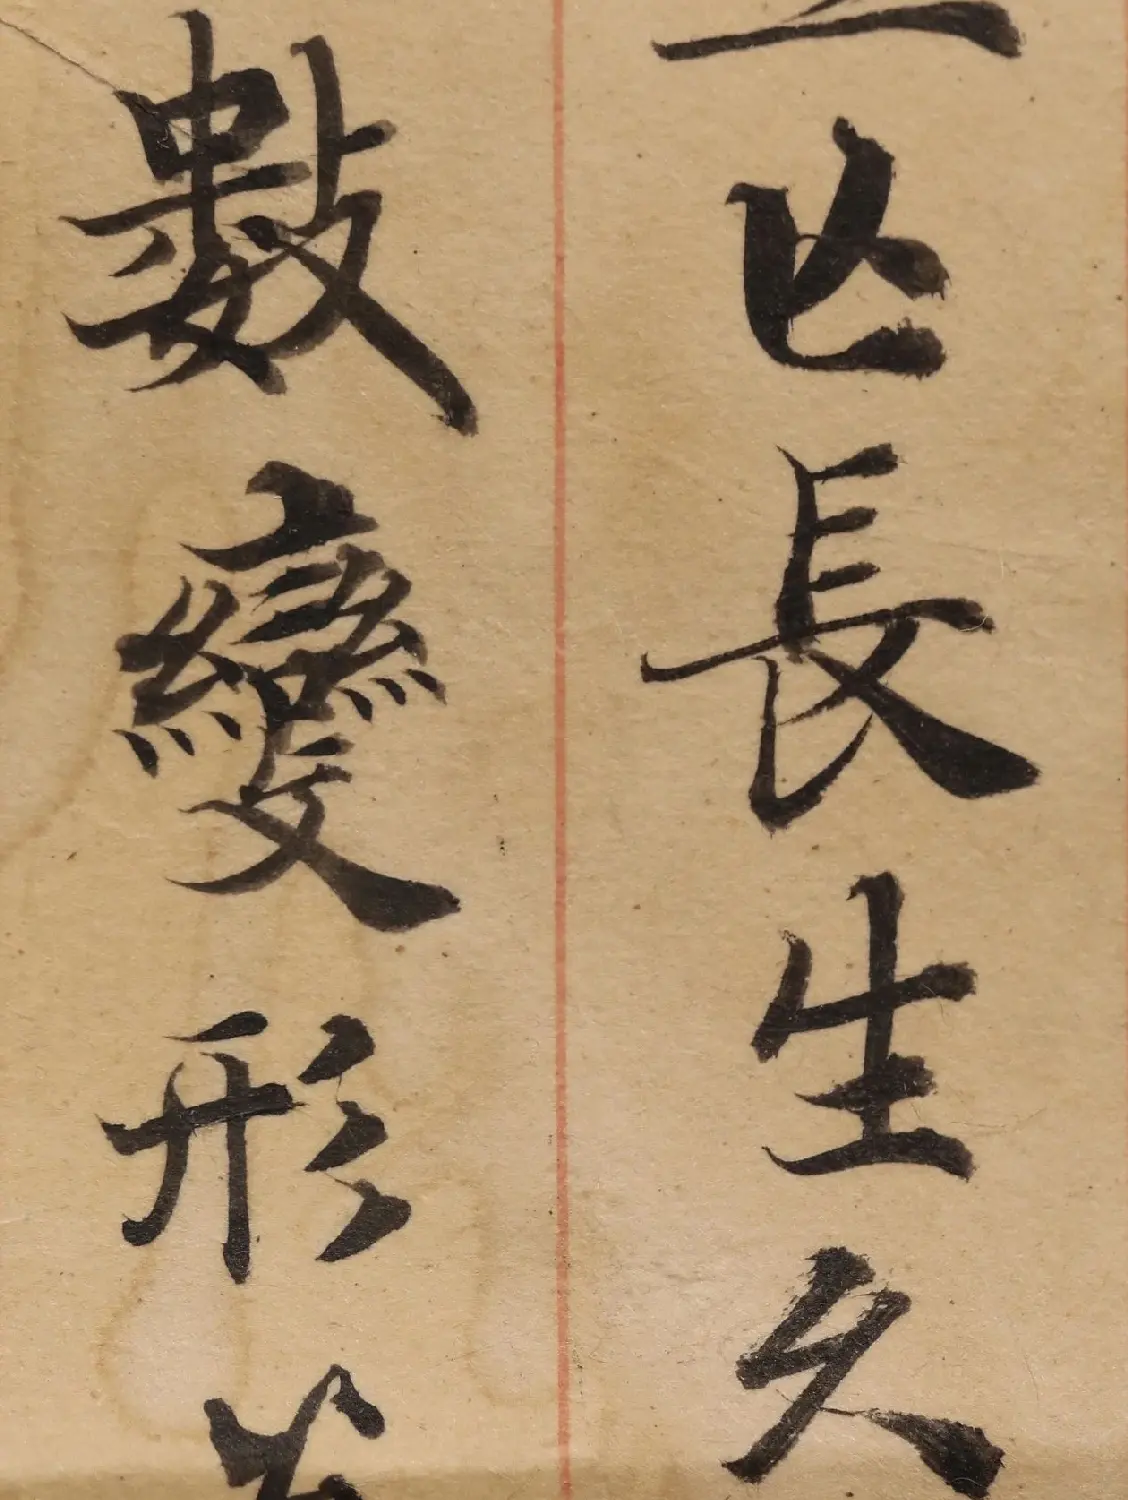 長生久
數變形